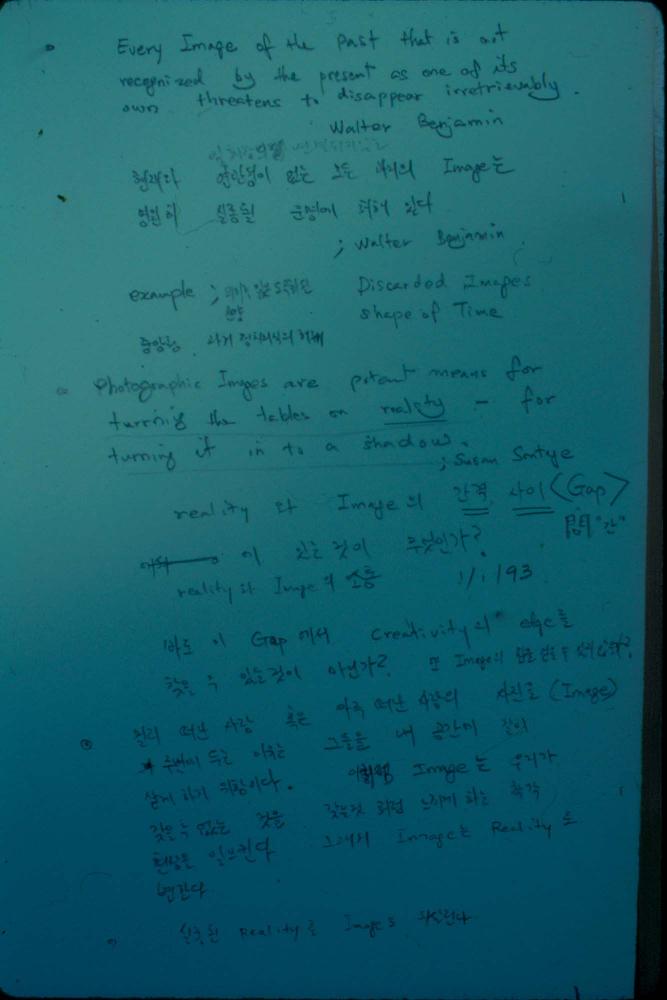 Every Image of the Past that is not
recognized by the present as one of its
own threatens to disappear irretrievably.
Walter Benjamin
현재와 연관됨이 없는 모든 과거의 Image는
영원히 실종될 운명에 처해 있다
; Walter Benjamin.
example ; Discarded Images
shape of Time
중앙청 과거 정치의식의 허깨
Photographic Images are potent means for
turning the tables on reality - for
turning it in to a shadow.
; Susan Sontye
reality 와 Image의 간격 사이 <Gap>
間 "간"
이 있는 것이 무엇인가?
reality와 Image의 소통 1/1/93
바로 이 Gap에서 Creativity의 edge를
찾을 수 있는것이 아닌가? 또 Image의 힘을 얻을 수 있지 않을까?
멀리 떠난 사람 혹은 아주 떠난 사람의 사진을 (Image)
주변에 두는 이유는 그들을 내 공간에 같이
살게 하기 위함이다. 이처럼 Image는 우리가
갖을 수 없는 것을 갖는것 처럼 느끼게 하는 착각
현상을 일으킨다 그래서 Image는 Reality로
변한다
실축된 Reality를 Image로